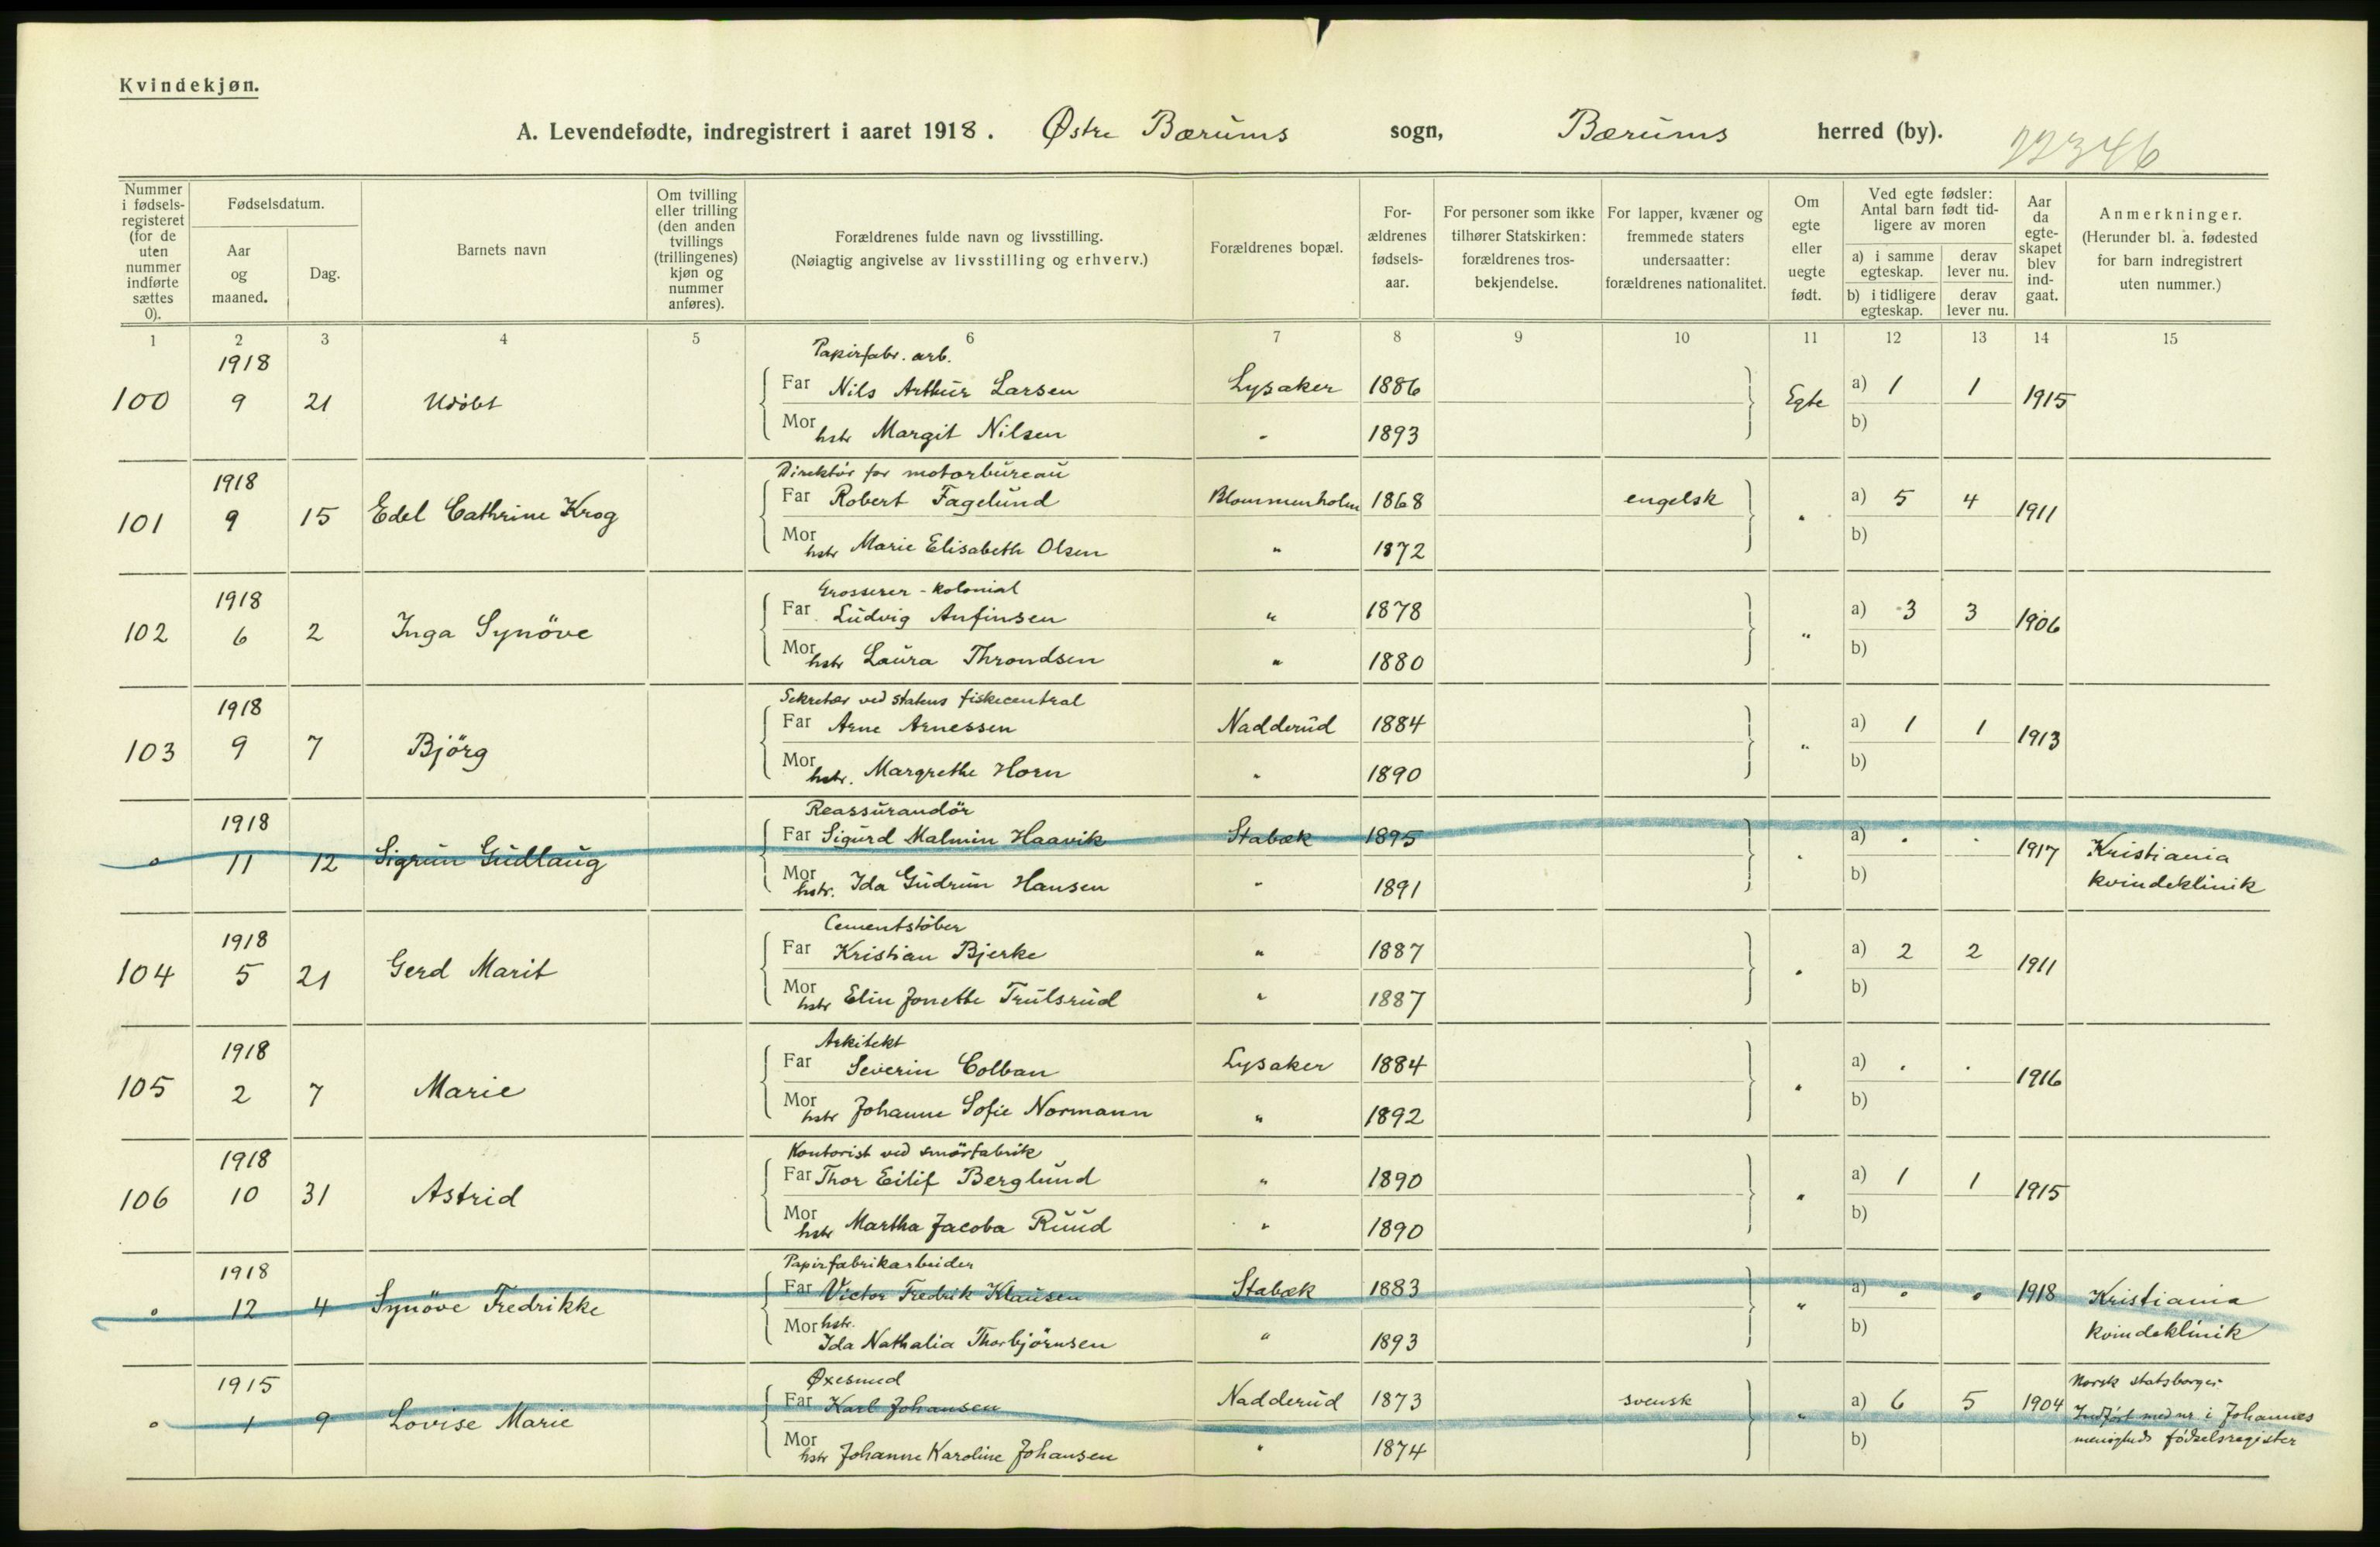 Kvindekjøn.
A. Levendefødte, indregistrert i aaret 1918. Østre Bærums sogn, Bærums herred (by). 22346
Nummer i fødsels-registeret (for de uten nummer indførte sættes 0).
Fødselsdatum.
Aar og maaned.
Dag.
Barnets navn
Om tvilling eller trilling (den anden tvillings (trillingenes) kjøn og nummer anføres).
Forældrenes fulde navn og livsstilling. (Nøiagtig angivelse av livsstilling og erhverv.)
Forældrenes bopæl.
For-ældrenes fødsels-aar.
For personer som ikke tilhører Statskirken: forældrenes tros-bekjendelse.
For lapper, kvæner og fremmede staters undersaatter: forældrenes nationalitet.
Om egte eller uegte født.
Ved egte fødsler: Antal barn født tid-ligere av moren
a) i samme egteskap. derav lever nu.
b) i tidligere egteskap. derav lever nu.
Aar da egte-skapet blev ind-gaat.
Anmerkninger. (Herunder bl. a. fødested for barn indregistrert uten nummer.)
1 2 3 4 5 6 7 8 9 10 11 12 13 14 15
1918 Papirfabr. arb.
100 9 21 Udöbt Far Nils Arthur Larsen Lysaker 1886 Egte a) 1 1 1915
Mor hstr Margit Nilsen " 1893 b)
1918 Direktör for motorbureau
101 9 15 Edel Cathrine Krog Far Robert Fagelund Blommenholm 1868 engelsk " a) 5 4 1911
Mor hstr Marie Elisabeth Olsen " 1872 b)
1918 Grosserer - kolonial
102 6 2 Inga Synöve Far Ludvig Anfinsen " 1878 " a) 3 3 1906
Mor hstr Laura Throndsen " 1880 b)
1918 Sekretær ved statens fiskecentral
103 9 7 Björg Far Arne Arnessen Nadderud 1884 " a) 1 1 1913
Mor hstr. Margrethe Horn " 1890 b)
1918 Reassurandör
o 11 12 Sigrun Gudlaug Far Sigurd Malmin Haavik Stabæk 1895 " a) . . 1917 Kristiania
Mor hstr. Ida Gudrun Hansen " 1891 b) kvindeklinik
1918 Cementstöber
104 5 21 Gerd Marit Far Kristian Bjerke " 1887 " a) 2 2 1911
Mor hstr Elin Jonette Trulsrud " 1887 b)
1918 Arkitekt
105 2 7 Marie Far Severin Colban Lysaker 1884 " a) . . 1916
Mor hstr Johanne Sofie Normann " 1892 b)
1918 Kontorist ved smörfabrik
106 10 31 Astrid Far Thor Eilif Berglund " 1890 " a) 1 1 1915
Mor hstr Martha Jacoba Ruud " 1890 b)
1918 Papirfabrikarbeider
o 12 4 Synöve Fredrikke Far Victor Fredrik Klausen Stabæk 1883 " a) . . 1918 Kristiania
Mor hstr. Ida Nathalia Thorbjörnsen " 1893 b) kvindeklinik
1915 Øxesmed Norsk statsborger
o 1 9 Lovise Marie Far Karl Johansen Nadderud 1873 svensk " a) 6 5 1904 Indfört med nr i Johannes
Mor hstr Johanne Karoline Johansen " 1874 b) menigheds födselsregister